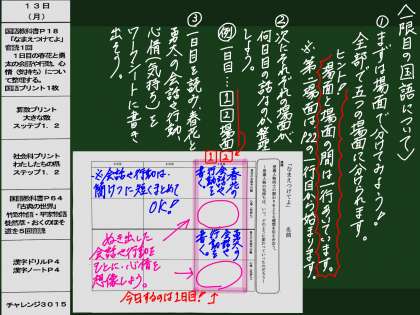 〈一限目の国語について〉
①まずは場面で分けよう！！
全部で五つの場面に分けられます！
ヒント!!
場面と場面の間は一行あいています。
※第一場面はP22の1行目から始まります。
②次にそれぞれの場面が、
何日目の話なのか書きま
しょう。
例 一日目…1 2場面
③一日目を読み、春花と
勇太の会話や行動
心情(気持ち)を
ワークシートに書き
出そう。
「なまえつけてよ」
名前
1 2
※会話や行動は
簡けつに短くまとめて
OK!
ぬき出した
会話や行動を
もとに…心情を
想像しよう。
今日するのは1日目!↑
13
日
(月)
国語教科書P18
「なまえつけてよ」
音読1回
1日目の春花と勇
太の会話や行動、心
情(気持ち)につい
て整理する。
国語プリント1枚
算数プリント
大きな数
ステップ1.2
社会科プリント
わたしたちの県
ステップ1.2
国語教科書P64
「古典の世界」
竹取物語・平家物語
徒然草・おくのほそ
道を5回音読
漢字ドリルP4
漢字ノートP4
チャレンジ3015